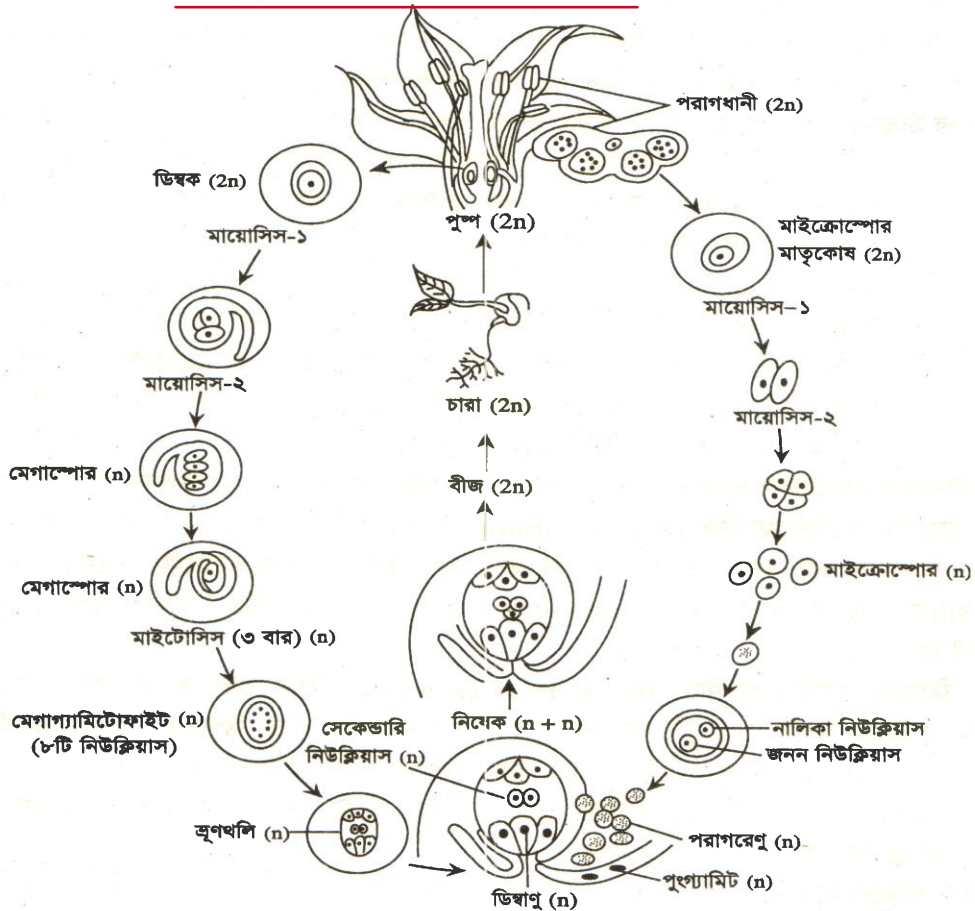 পরাগধানী (2n)
ডিম্বক (2n)
পুষ্প (2n)
মাইক্রোস্পোর
মাতৃকোষ (2n)
মায়োসিস-১
মায়োসিস-১
মায়োসিস-২
চারা (2n)
মায়োসিস-২
মেগাস্পোর (n)
বীজ (2n)
মাইক্রোস্পোর (n)
মেগাস্পোর (n)
মাইটোসিস (৩ বার) (n)
মেগাগ্যামিটোফাইট (n)
(৮টি নিউক্লিয়াস)
সেকেন্ডারি
নিউক্লিয়াস (n)
নিষেক (n + n)
নালিকা নিউক্লিয়াস
জনন নিউক্লিয়াস
ভ্রূণথলি (n)
পরাগরেণু (n)
পুংগ্যামিট (n)
ডিম্বাণু (n)